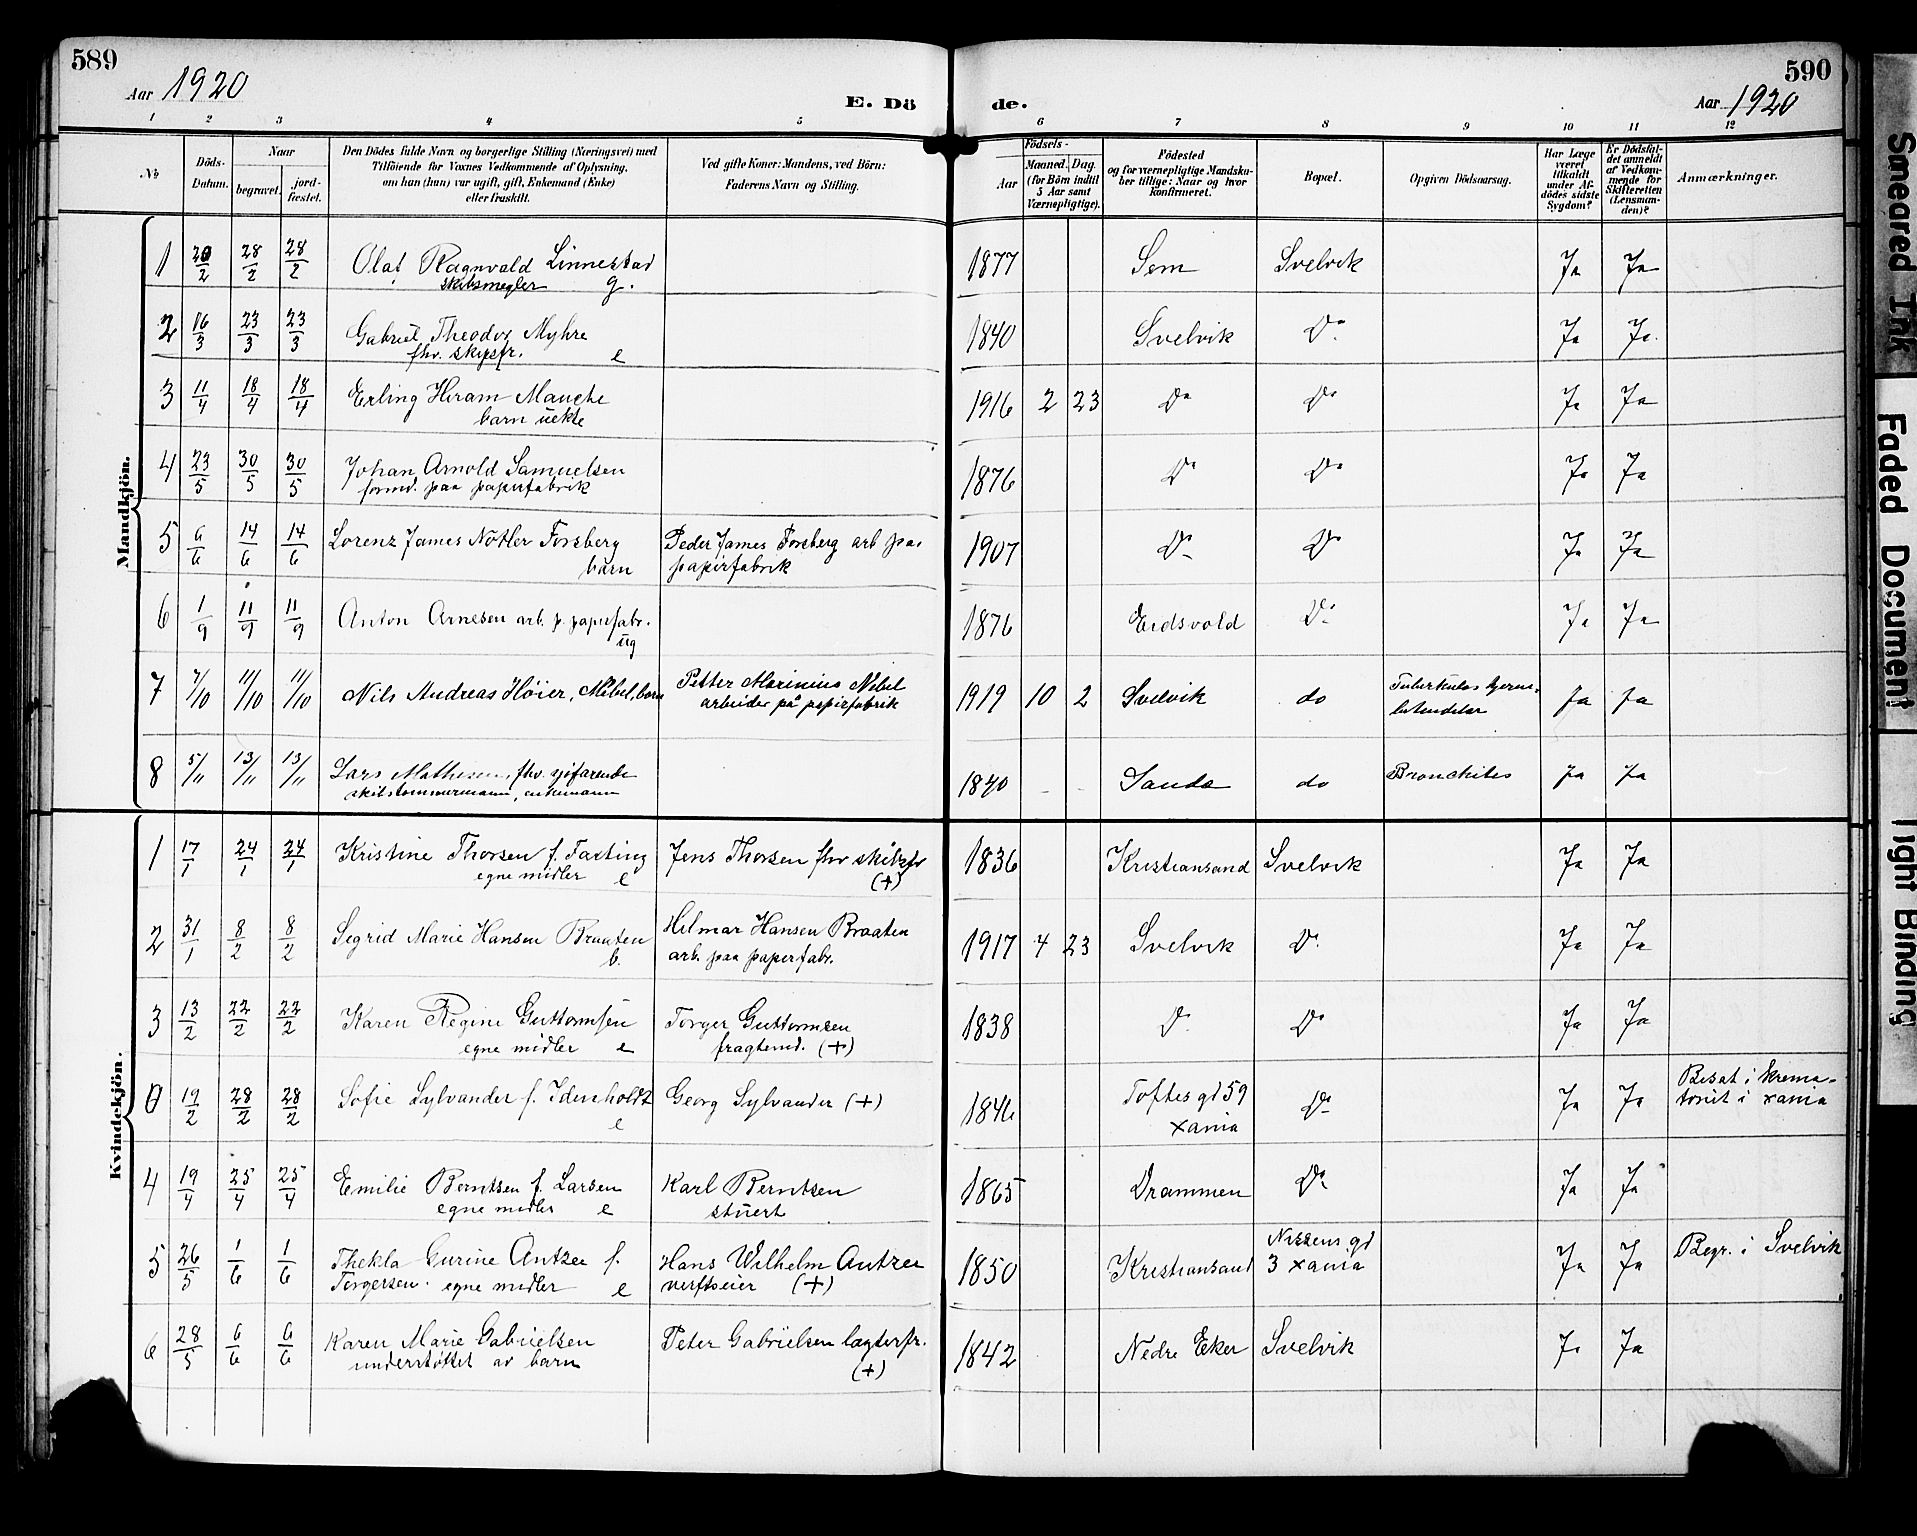 589
590
Aar 1920
E. Dö
de.
Aar 1920
1 2 3 4 5 6 7 8 9 10 11 12
No
Döds-
Datum.
Naar
begravet.
jord-
fæstet.
Den Dödes fulde Navn og borgerlige Stilling (Næringsvei) med
Tilföiende for Voxnes Vedkommende af Oplysning,
om han (hun) var ugift, gift, Enkemand (Enke)
eller fraskilt.
Ved gifte Koner: Mandens, ved Börn:
Faderens Navn og Stilling.
Födsels-
Aar
Maaned. Dag
(for Börn indtil
3 Aar samt
Værnepligtige).
Födested
og for værnepligtige Mandskа-
ber tillige: Naar og hvor
konfirmeret.
Bopæl.
Opgiven Dödsaarsag.
Har Læge
været
tilkaldt
under Af-
dödes sidste
Sygdom?
Er Dödsfal-
det anmeldt
af Vedkom-
mende for
Skifteretten
(Lensman-
den)?
Anmærkninger.
Mandkjön.
1 20/2 28/2 28/2 Olaf Ragnvald Linnestad 1877 Sem Svelvik Ja Ja
skibsmegler g.
2 16/3 23/3 23/3 Gabriel Theodor Myhre 1840 Svelvik Do Ja Ja.
fhv. skipsfr. e
3 11/4 18/4 18/4 Erling Hiram Manche 1916 2 23 Do Do Ja Ja
barn uekte
4 23/5 30/5 30/5 Johan Arnold Samuelsen 1876 Do Do Ja Ja
formd. paa papirfabrik
5 6/6 14/6 14/6 Lorenz James Notler Forsberg Peder James Forsberg arb pa. 1907 Do Do Ja Ja
barn papirfabrik
6 1/9 11/9 11/9 Anton Arnesen arb. p. papirfabr. 1876 Eidsvold Do Ja Ja
ug
7 7/10 11/10 11/10 Nils Andreas Høier, Mebel, barn Petter Marinius Nebel 1919 10 2 Svelvik do Tuberkuløs hjerne- Ja Ja
arbeider på papirfabrik betendelse
8 5/11 13/11 13/11 Lars Mathisen, fhv. sjøfarende 1840 - - Sande do Bronchites Ja Ja
skibstømmermann, enkemann
Kvindekjön.
1 17/1 24/1 24/1 Kristine Thorsen f. Fasting Jens Thorsen fhv skibsfr 1836 Kristiansand Svelvik Ja Ja
egne midler e (+)
2 31/1 8/2 8/2 Sigrid Marie Hansen Braaten Hilmar Hansen Braaten 1917 4 23 Svelvik Do Ja Ja
b. arb. paa papirfabr.
3 13/2 22/2 22/2 Karen Regine Guttormsen Torger Guttormsen 1838 Do Do Ja Ja
egne midler e fragtemd. (+)
0 19/2 28/2 28/2 Sofie Sylvander f. Idenholdt Georg Sylvander (+) 1846 Toftes gd 59 Do Ja Ja Bisat i krema-
e xania toriet i xania
4 19/4 25/4 25/4 Emilie Berntsen f. Larsen Karl Berntsen 1865 Drammen Do Ja Ja
egne midler e stuert
5 26/5 1/6 1/6 Thekla Gurine Antzee f. Hans Wilhelm Antzee 1850 Kristiansand Nissens gd Ja Ja Begr. i Svelvik
Torgersen. egne midler e verftseier (+) 3 xania
6 28/5 6/6 6/6 Karen Marie Gabrielsen Peter Gabrielsen lagterfr. 1842 Nedre Eker Svelvik Ja Ja
understøttet av barn (+)
Smeared Ink
Faded Document
Tight Binding